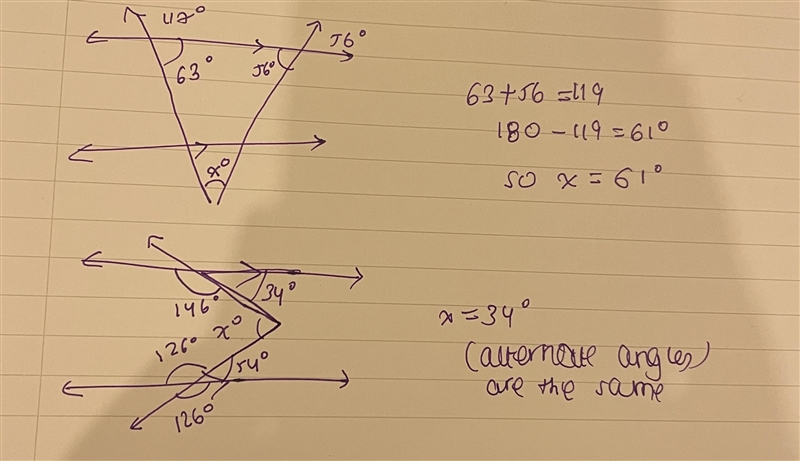 117°
56°
63°
56°
63+56=119
180-119=61°
x°
so x=61°
146°
34°
x°
126°
54°
126°
x=34°
(alternate angles)
are the same